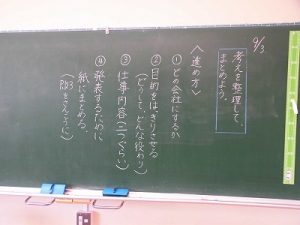 9/3
考えを整理して、
まとめよう。
〈進め方〉
①どの会社にするか
②目的をはっきりさせる
(どうして、どんな役わり)
③仕事内容(二つぐらい)
④発表するために
紙にまとめる。
(P133をさんこうに)